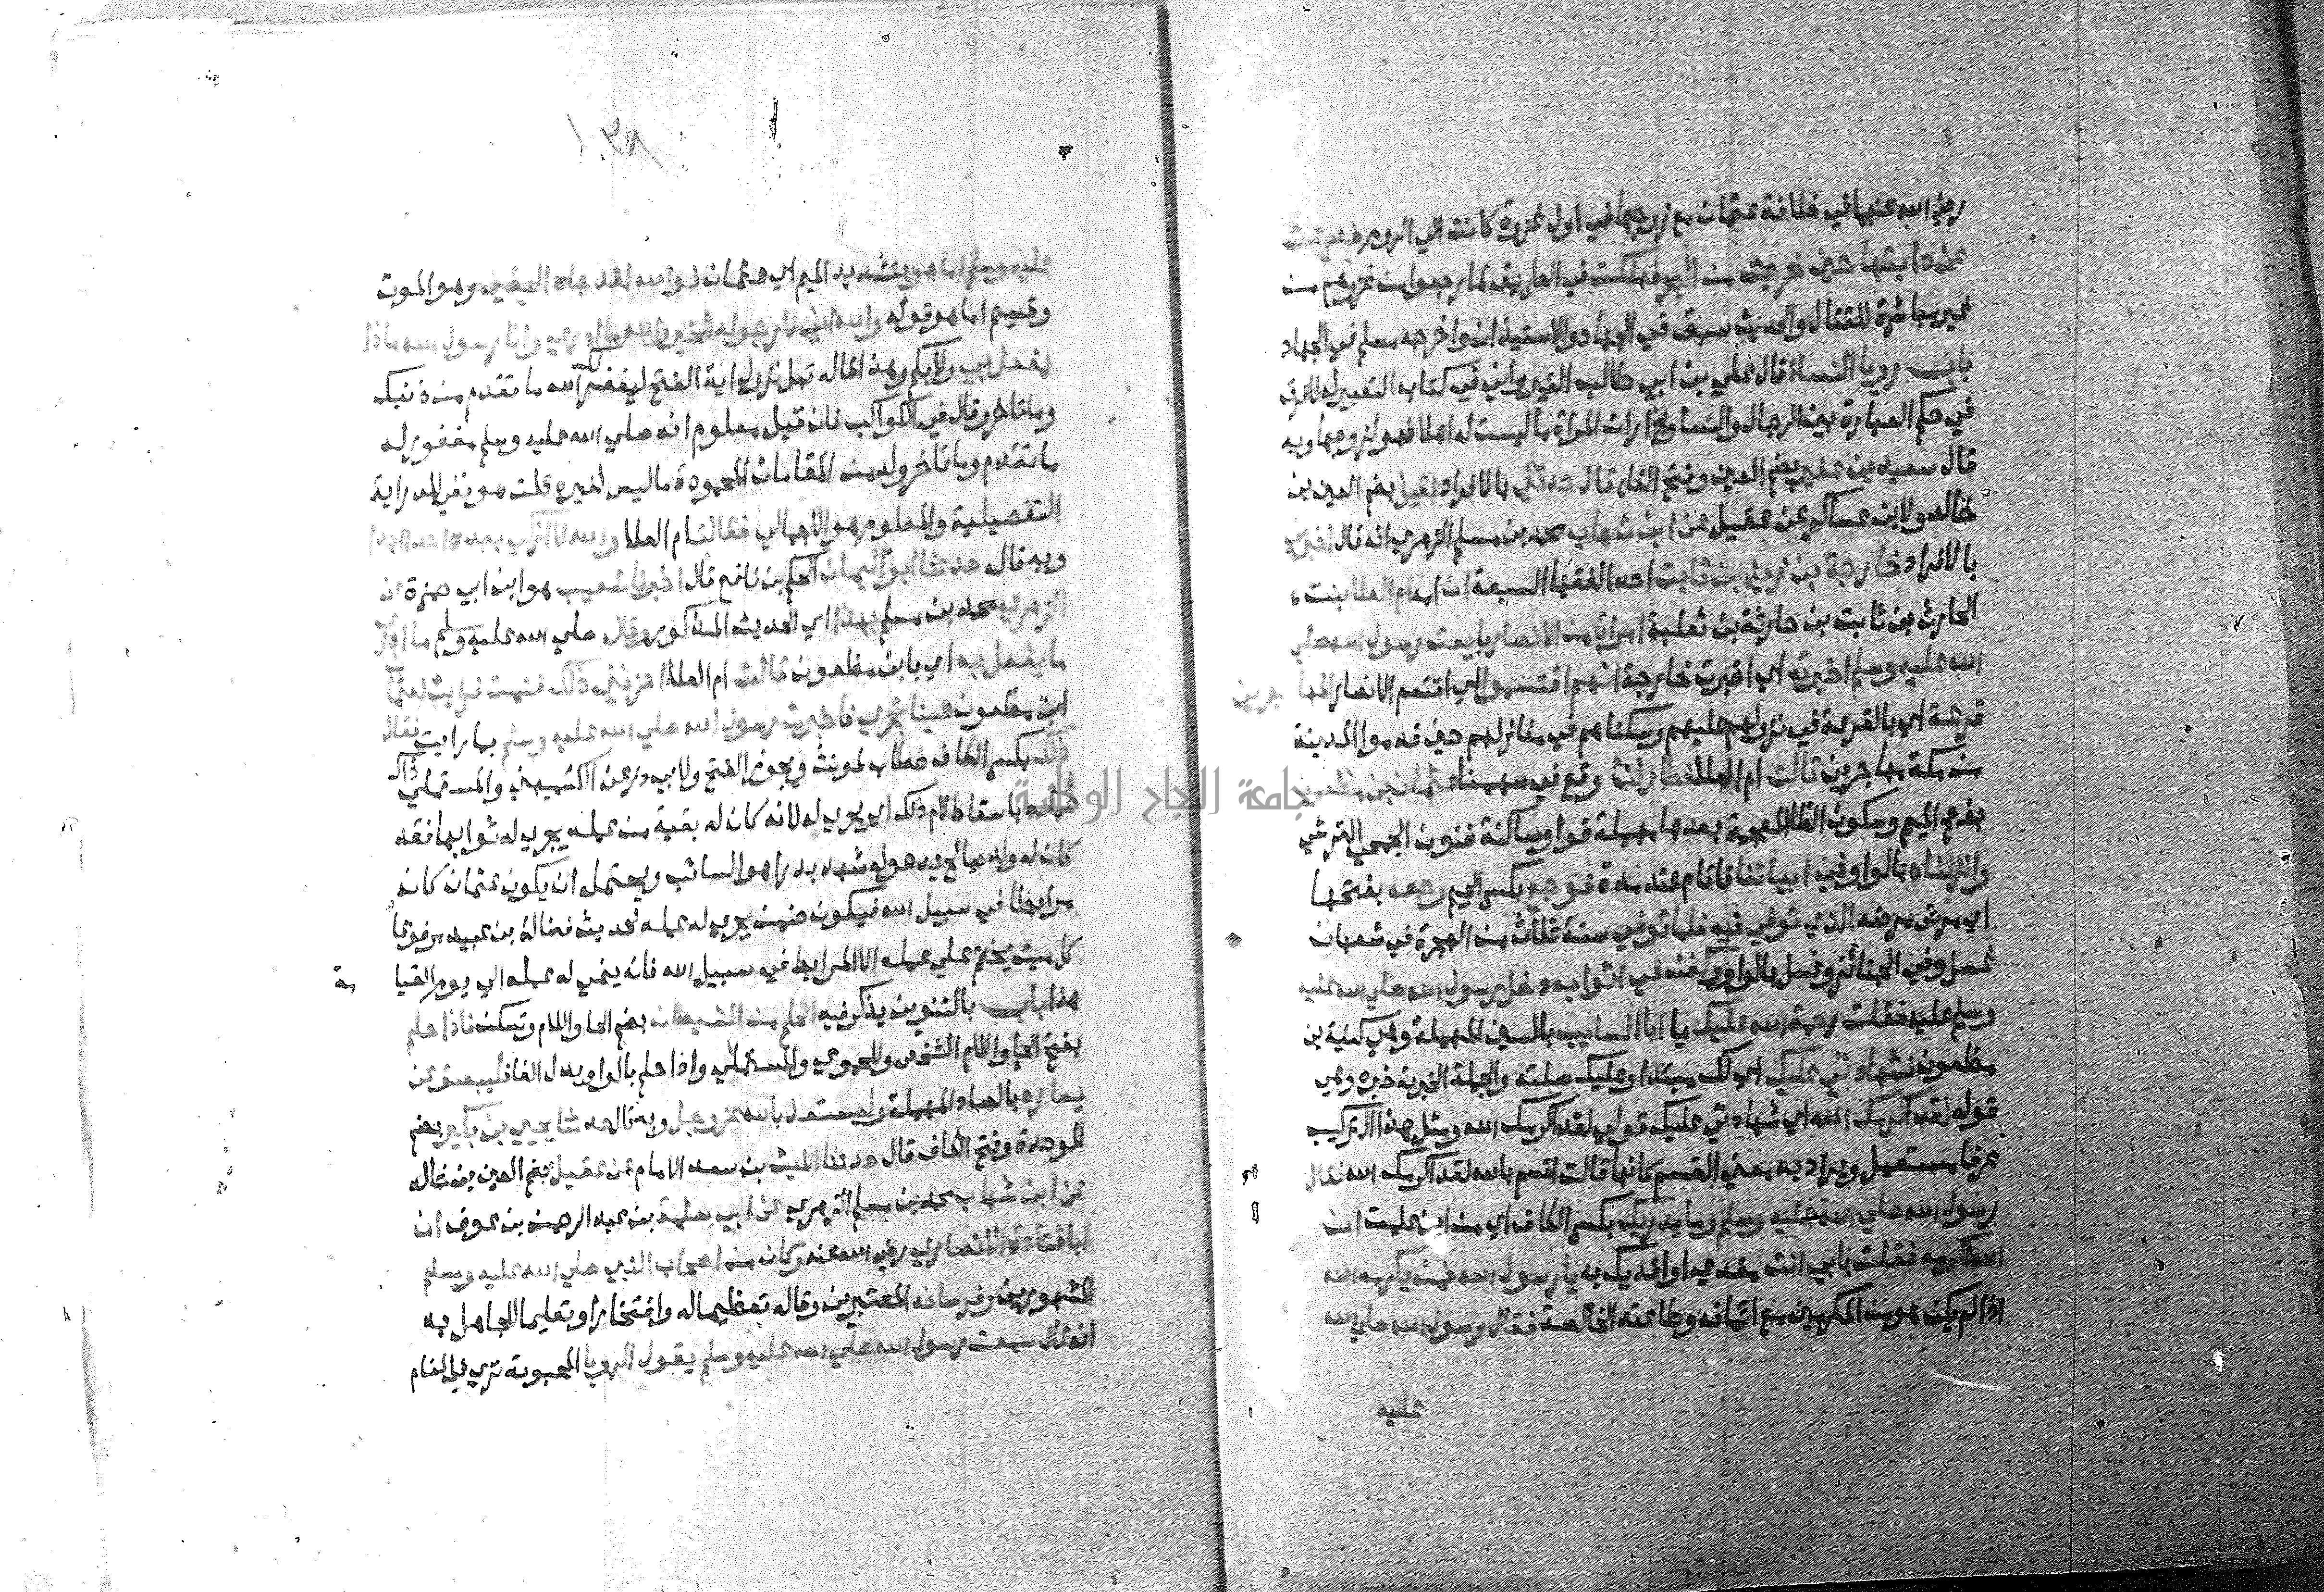 رضي الله عنها في خلافة عثمان مع زوجها في اول غزوة كانت الي الروم فصرعت
عن دابتها حين خرجت من البحر فهلكت في الطريق لما رجعوا من غزوهم من
غير مباشرة للقتال والحديث سبق في الجهاد والاستيذان واخرجه مسلم في الجهاد
باب رويا النساء قال علي بن ابي طالب القيرواني في كتابه التعبير له لا فرق
في حكم العبارة بين الرجال والنسا واذا رات المراة ما ليست له اهلا فهو لزوجها وبه
قال سعيد بن عفير بضم العين وفتح الفاء قال حدثني بالافراد عقيل بضم العين بن
خالد ولابن عساكر عن عقيل عن ابن شهاب محمد بن مسلم الزهري انه قال اخبرني
بالافراد خارجة بن زيد بن ثابت احد الفقها السبعة ان ام العلا بنت
الحارث بن ثابت بن حارثة بن ثعلبة امراة من الانصار بايعت رسول الله صلي
الله عليه وسلم اخبرته اي اخبرت خارجة انهم اقتسموا اي اقتسم الانصار المها جرين
قرعة اي بالقرعة في نزولهم عليهم وسكناهم في منازلهم حين قدموا المدينة
من مكة مهاجرين قالت ام العلا فطار لنا وقع في سهمنا عثمان بن مظعون
بفتح الميم وسكون الظا المعجمة بعدها مهملة فواو ساكنة فنون الجمحي القرشي
وانزلناه بالواو في ابياتنا فاقام عنده مدة فوجع بكسر الجيم وجعه بفتحها
اي مرض مرضه الذي توفي فيه فلما توفي سنة ثلاث من الهجرة في شعبان
غسل وفي الجنائز وغسل بالواو وكفن في اثوابه دخل رسول الله صلي الله عليه
وسلم عليه فقلت رحمة الله عليك يا ابا السايب بالسين المهملة وهي كنية بن
مظعون فشهادتي عليك اي لك مبتدا وعليك صلته والجملة الخبرية خبره وهي
قوله لقد اكرمك الله اي شهادتي عليك قولي لقد اكرمك الله ومثل هذا التركيب
عرفا مستعمل ويراد به معني القسم كانها قالت اقسم بالله لقد اكرمك الله فقال
رسول الله صلي الله عليه وسلم وما يدريك بكسر الكاف اي من اين علمت ان
الله اكرمه فقلت بابي انت مفدي او افديك به يا رسول الله فمن يكرمه الله
اذا لم يكن هو من المكرمين مع ايمانه وطاعته الخالصة فقال رسول الله صلي الله
عليه
١٠٣٨
عليه وسلم اما هو بتشديد الميم اي عثمان فوالله لقد جاه اليقين وهو الموت
وقسيم اما هو قوله والله اني لارجو له الخير والله ما ادري وانا رسول الله ماذا
يفعل بي ولا بكم وهذا قاله قبل نزول اية الفتح ليغفر لك الله ما تقدم من ذنبك
وما تاخر وقال في الكواكب فان قيل معلوم انه صلي الله عليه وسلم مغفور له
ما تقدم وما تاخر وله من المقامات المحمودة ما ليس لغيره قلت هو نفي للدراية
التفصيلية والمعلوم هو الاجمالي فقالت ام العلا والله لا ازكي بعده احد ابدا
وبه قال حدثنا ابو اليمان الحكم بن نافع قال اخبرنا شعيب هو ابن ابي حمزة عن
الزهري محمد بن مسلم بهذا اي الحديث المذكور وقال صلي الله عليه وسلم ما ادري
ما يفعل به اي بابن مظعون قالت ام العلا احزنني ذلك فنمت فرايت لعثمان
ابن مظعون عينا تجري فاخبرت رسول الله صلي الله عليه وسلم بما رايت فقال
ذلك بكسر الكاف خطاب لمونث ويجوز الفتح ولابي ذر عن الكشميهني والمستملي ذاك
عمله باسقاط لام ذلك اي يجري له لانه كان له بقية من عمله يجري له ثوابها فقد
كان له ولد صالح يدعو له شهد بدرا هو السائب ويحتمل ان يكون عثمان كان
مرابطا في سبيل الله فيكون ضمن يجري له عمله لحديث فضالة بن عبيد مرفوعا
كل ميت يختم علي عمله الا المرابط في سبيل الله فانه ينمي له عمله الي يوم القيا مة
هذا باب بالتنوين يذكر فيه الحلم من الشيطان بضم الحا واللام وتسكن فاذا حلم
بفتح الحا واللام الشخص وللحموي والمستملي واذا حلم بالواو بدل الفا فليبصق عن
يساره بالصاد المهملة وليستعذ بالله عز وجل وبه قال حدثنا يحيي بن بكير بضم
الموحدة وفتح الكاف قال حدثنا الليث بن سعد الامام عن عقيل بضم العين بن خالد
عن ابن شهاب محمد بن مسلم الزهري عن ابي سلمة بن عبد الرحمن بن عوف ان
ابا قتادة الانصاري رضي الله عنه وكان من اصحاب النبي صلي الله عليه وسلم
المشهورين وفرسانه المعتبرين وقاله تعظيما له وافتخارا وتعليما للجاهل به
انه قال سمعت رسول الله صلي الله عليه وسلم يقول الرويا المحبوبة تري في المنام
جامعة النجاح الوطنية